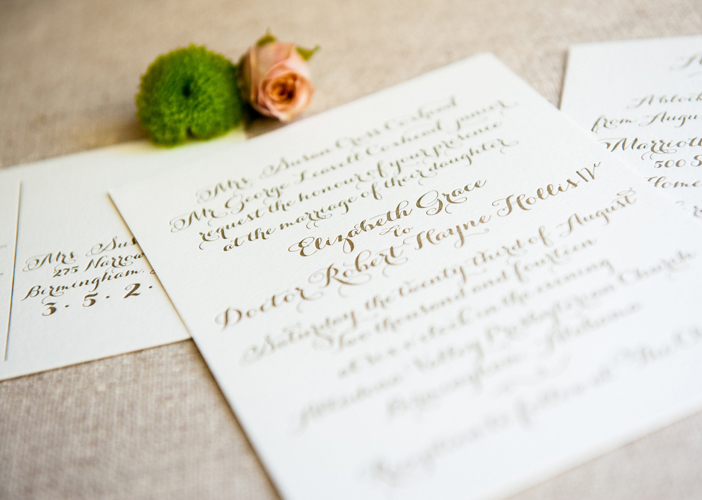 Mrs. Susan Cross Coxhead
Mr. George Leavell Coxhead, junior
request the honour of your presence
at the marriage of their daughter
Elizabeth Grace
to
Doctor Robert Hayne Hollis IV
Saturday the twenty third of August
two thousand and fourteen
at six o'clock in the evening
Valley Presbyterian Church
Birmingham, Alabama
Mrs. Sus
275 Narro
Birmingham
3 . 5 . 2 .
A block
from Augu
Marriott
500 S
Home